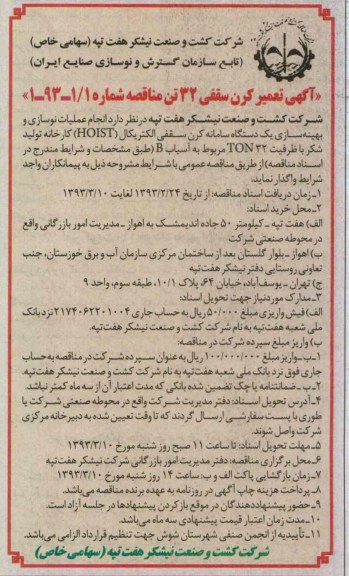 شرکت کشت و صنعت نیشکر هفت تپه (سهامی خاص)
(تابع سازمان گسترش و نوسازی صنایع ایران)
«آگهی تعمیر کرن سقفی ۳۲ تن مناقصه شماره ۱/۱-۹۳-۱»
شرکت کشت و صنعت نیشکر هفت تپه در نظر دارد انجام عملیات نوسازی و
بهینه‌سازی یک دستگاه سامانه کرن سقفی الکتریکال (HOIST) کارخانه تولید
شکر با ظرفیت TON ۳۲ مربوط به آسیاب B (طبق مشخصات و شرایط مندرج در
اسناد مناقصه) از طریق مناقصه عمومی با شرایط مشروحه ذیل به پیمانکاران واجد
شرایط واگذار نماید.
۱-زمان دریافت اسناد مناقصه: از تاریخ ۱۳۹۳/۲/۲۴ لغایت ۱۳۹۳/۳/۱۰
۲-محل خرید اسناد:
الف) هفت تپه - کیلومتر ۵۰ جاده اندیمشک به اهواز - مدیریت امور بازرگانی واقع
در محوطه صنعتی شرکت
ب) اهواز - بلوار گلستان بعد از ساختمان مرکزی سازمان آب و برق خوزستان، جنب
تعاونی روستایی دفتر نیشکر هفت‌تپه
ج) تهران - یوسف‌آباد، خیابان ۶۴، پلاک ۱۰/۱، طبقه سوم، واحد ۹
۳-مدارک مورد نیاز جهت تحویل اسناد:
الف) فیش واریزی مبلغ ۵۰/۰۰۰ ریال به حساب جاری ۲۱۷۴۰۶۲۲۰۱۰۰۴ نزد بانک
ملی شعبه هفت‌تپه به نام شرکت کشت و صنعت نیشکر هفت‌تپه.
ب) واریز مبلغ سپرده شرکت در مناقصه:
۱-ب-واریز مبلغ ۱۰۰/۰۰۰/۰۰۰ ریال به عنوان سپرده شرکت در مناقصه به حساب
جاری فوق نزد بانک ملی شعبه هفت‌تپه به نام شرکت کشت و صنعت نیشکر هفت‌تپه.
۲-ب-ضمانتنامه یا چک تضمین شده بانکی که مدت اعتبار آن از سه ماه کمتر نباشد.
۴-آدرس تحویل اسناد: دفتر مدیریت شرکت واقع در محوطه صنعتی شرکت یا
طوری با پست سفارشی ارسال گردند که تا وقت تعیین شده به دبیرخانه مرکزی
شرکت واصل شوند.
۵-مهلت تحویل اسناد: تا ساعت ۱۱ صبح روز شنبه مورخ ۱۳۹۳/۳/۱۰
۶-محل برگزاری مناقصه: دفتر مدیریت امور بازرگانی شرکت نیشکر هفت‌تپه
۷-زمان بازگشایی پاکت الف و ب: ساعت ۱۴ روز شنبه مورخ ۱۳۹۳/۳/۱۰
۸-پرداخت هزینه چاپ آگهی در روزنامه به عهده برنده مناقصه می‌باشد.
۹-حضور پیشنهاددهندگان در موقع باز کردن پیشنهادها در جلسه آزاد است.
۱۰-مدت زمان اعتبار قیمت پیشنهادی سه ماه می‌باشد.
۱۱-تأییدیه از انجمن صنفی شهرستان شوش جهت تنظیم قرارداد الزامی می‌باشد.
شرکت کشت و صنعت نیشکر هفت تپه (سهامی خاص)